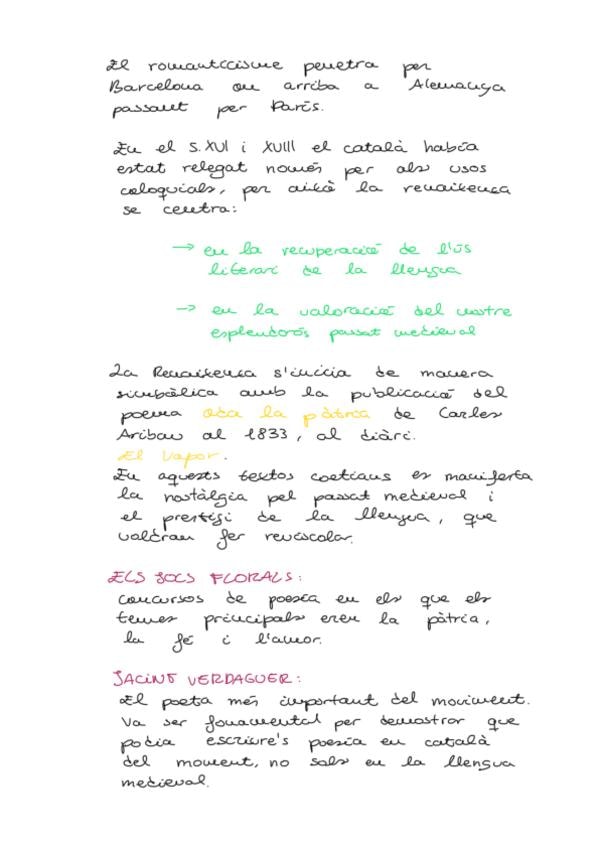 El romanticisme penetra per
Barcelona on arriba a Alemanya
passant per París.
En el S.XVI i XVIII el català havia
estat relegat només per als usos
coloquials, per això la renaixença
se centra:
→ en la recuperació de l'ús
literari de la llengua
→ en la valoració del nostre
esplendorós passat medieval
La Renaixença s'inicia de manera
simbòlica amb la publicació del
poema Oda la pàtria de Carles
Aribau al 1833, al diàri.
El Vapor.
En aquests textos coetians es manifesta
la nostàlgia pel passat medieval i
el prestigi de la llengua, que
valdran fer reviscolar.
ELS JOCS FLORALS:
concursos de poesia en els que els
temes principals eren la pàtria,
la fé i l'amor.
JACINT VERDAGUER:
El poeta més important del moviment.
Va ser fonamental per demostrar que
podia escriure's poesia en català
del moment, no sols en la llengua
medieval.